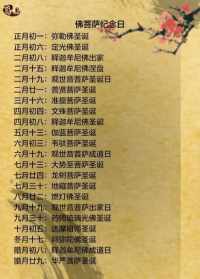 佛菩萨纪念日
正月初一：弥勒佛圣诞
正月初六：定光佛圣诞
二月初八：释迦牟尼佛出家
二月十五：释迦牟尼佛涅盘
二月十九：观世音菩萨圣诞日
二月廿一：普贤菩萨圣诞
三月十六：准提菩萨圣诞
四月初四：文殊菩萨圣诞
四月初八：释迦牟尼佛圣诞
五月十三：伽蓝菩萨圣诞
六月初三：韦驮菩萨圣诞
六月十九：观世音菩萨成道日
七月十三：大势至菩萨圣诞
七月廿四：龙树菩萨圣诞
七月三十：地藏菩萨圣诞
八月廿二：燃灯佛圣诞
九月十九：观世音菩萨出家日
九月三十：药师琉璃光佛圣诞
十月初五：达摩祖师圣诞
冬月十七：阿弥陀佛圣诞
腊月初八：释迦牟尼佛成道日
腊月廿九：华严菩萨圣诞